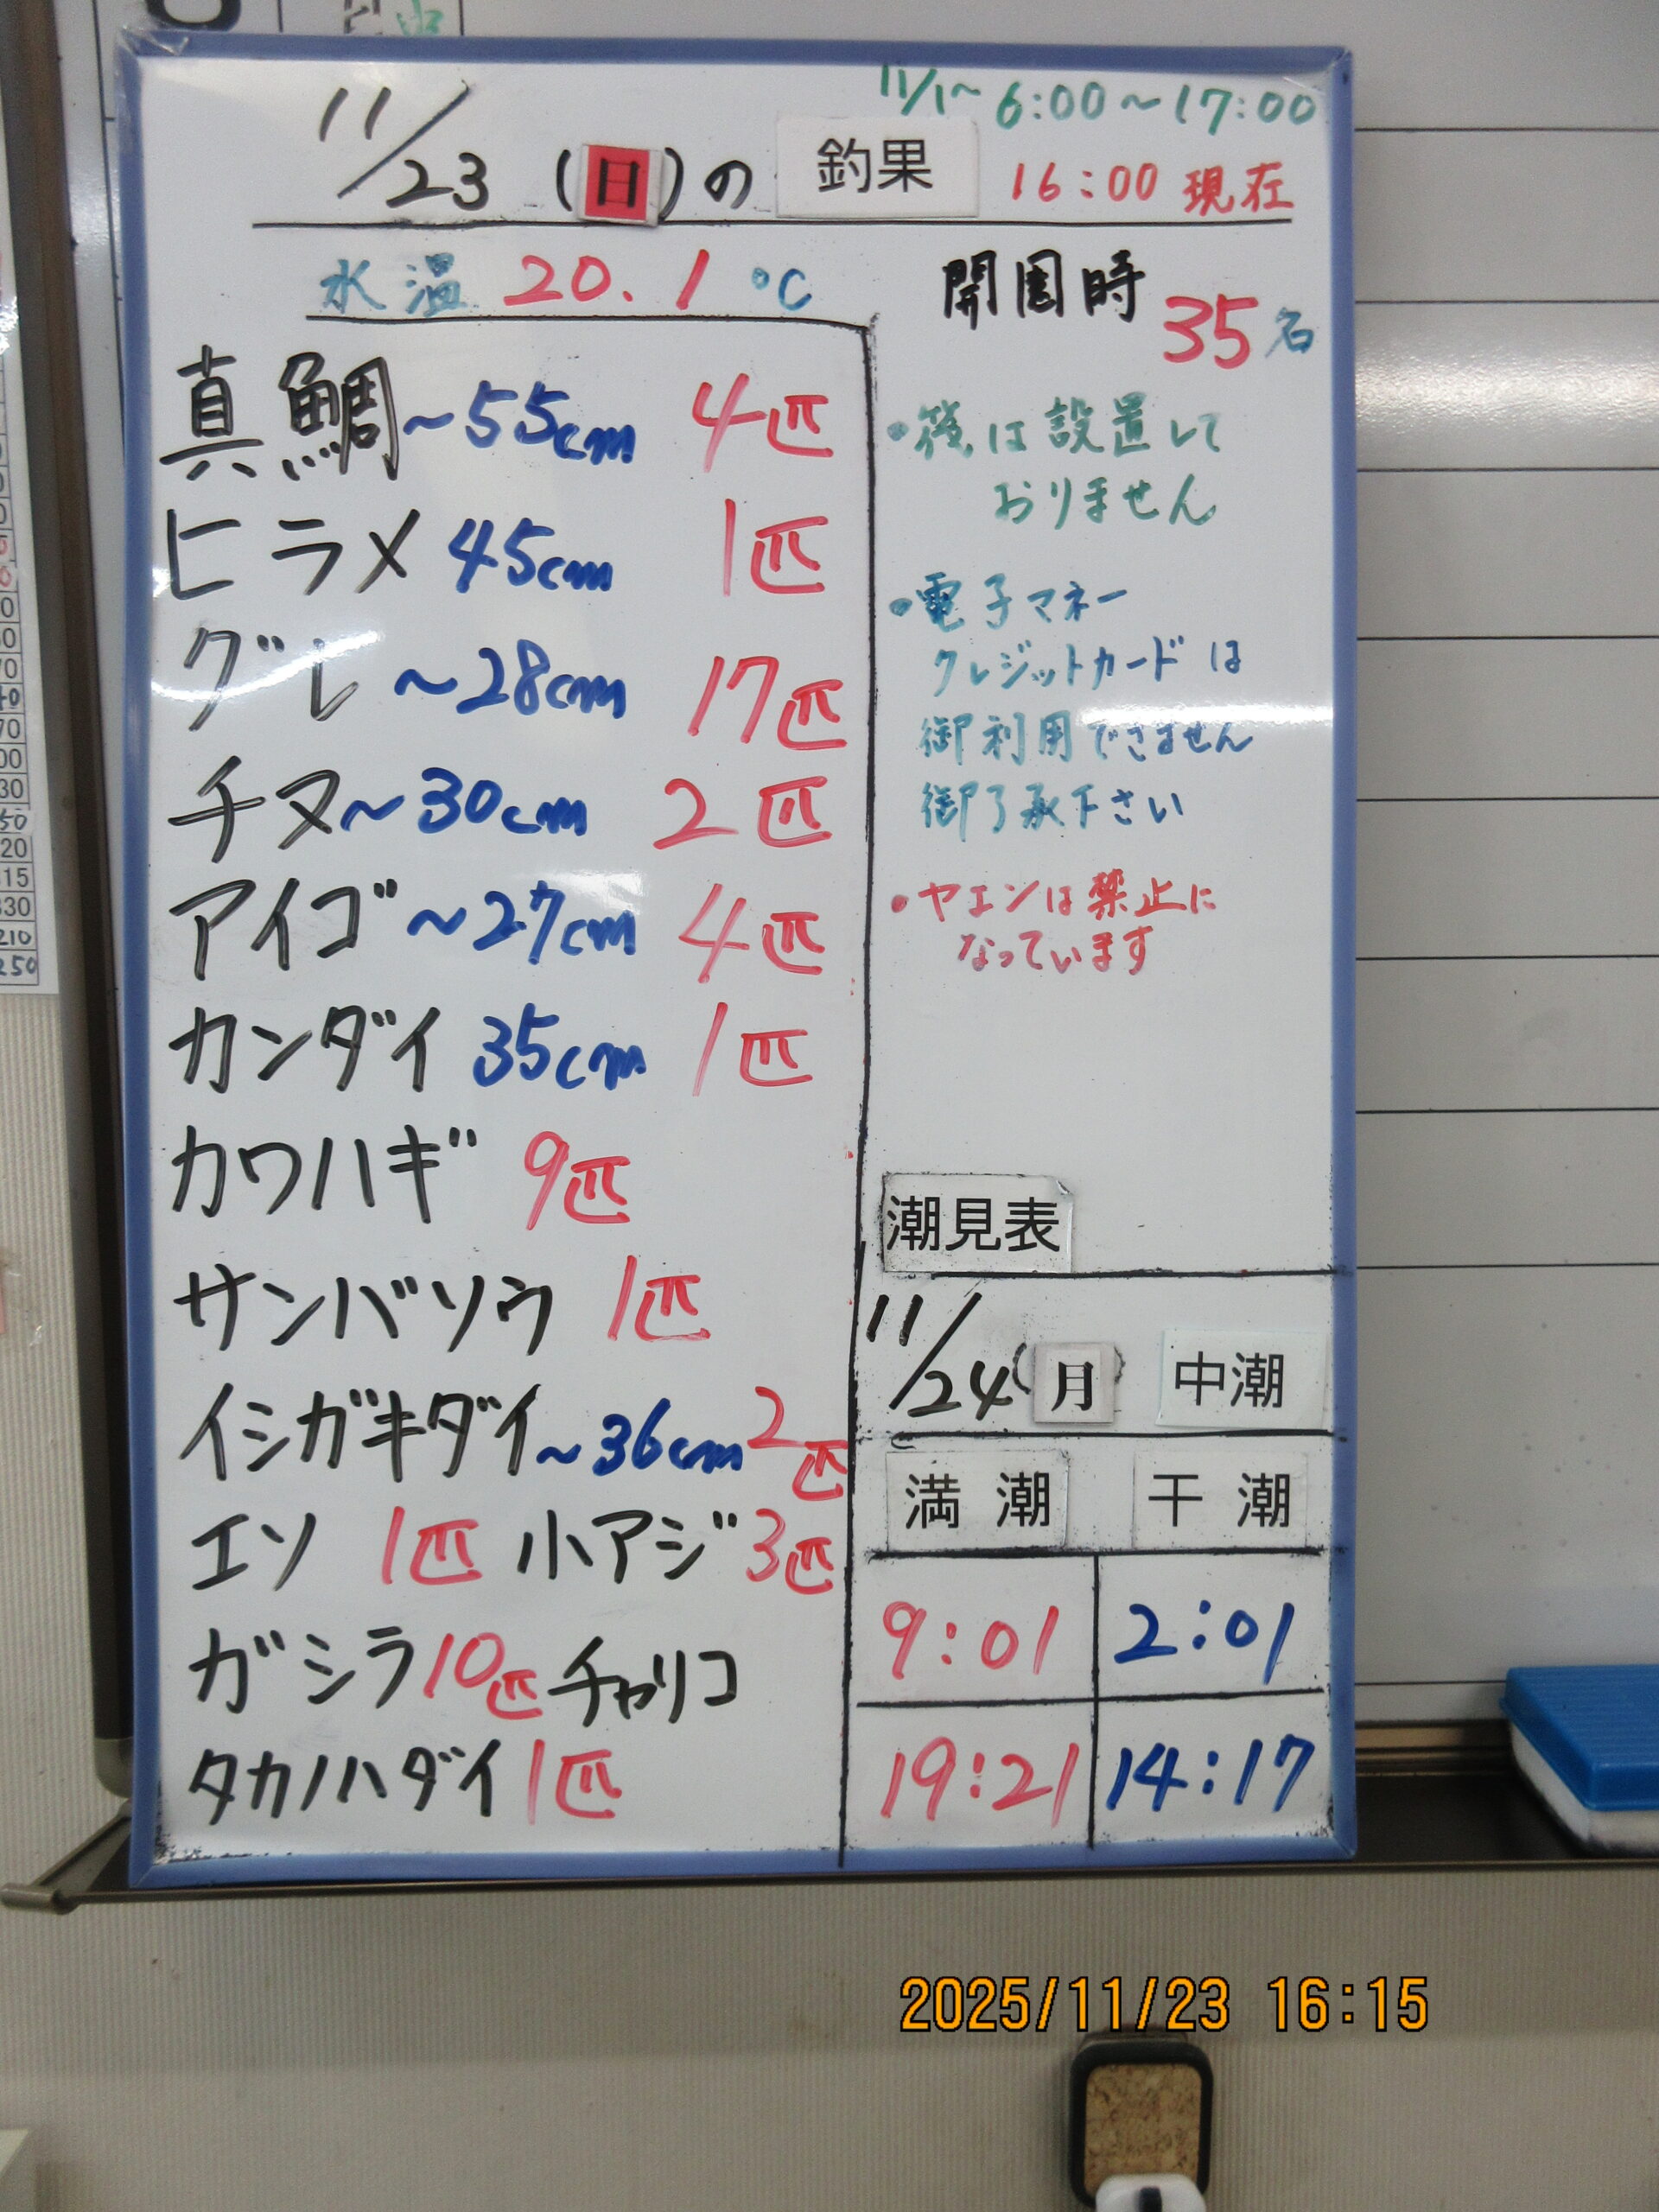 11/1~ 6:00~17:00
11/23 (日)の 釣果 16:00 現在
水温 20.1 ℃
開園時 35名
真鯛~55cm 4匹
ヒラメ 45cm 1匹
グレ ~28cm 17匹
チヌ~30cm 2匹
アイゴ~27cm 4匹
カンダイ 35cm 1匹
カワハギ 9匹
サンバソウ 1匹
イシガキダイ~36cm 2匹
エソ 1匹 小アジ 3匹
ガシラ 10匹 チャリコ
タカノハダイ 1匹
は設置して
おりません
・電子マネー
クレジットカードは
御利用できません
御了承下さい
・ヤエンは禁止に
なっています
潮見表
11/24(月) 中潮
満潮 干潮
9:01 2:01
19:21 14:17
2025/11/23 16:15